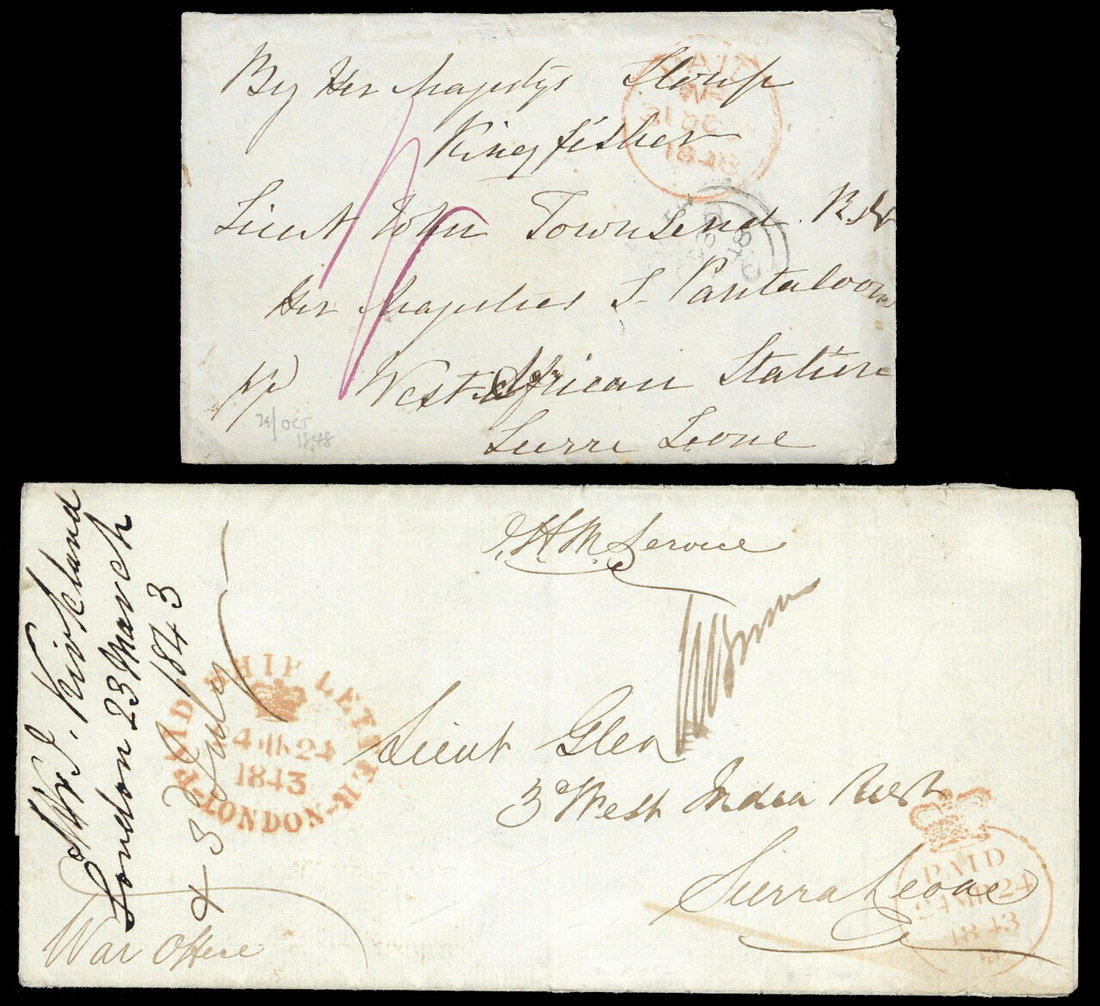 By Her Majestys Sloop
Kingfisher
Lieut John Townsend R.N
Her Majesties S. Pantaloon
pp West African Station
Sierra Leone
29/OCT
1848
PAID
31 DE
1848
O.H.M. Service
Lieut Glen
3d West India Regt
Sierra Leone
Mr J. Kirkland
London 23 March
1843
+ 3 July
War Office
PAID SHIP LETTER
24 MR 24
1843
LONDON
PAID
24 MR 24
1843